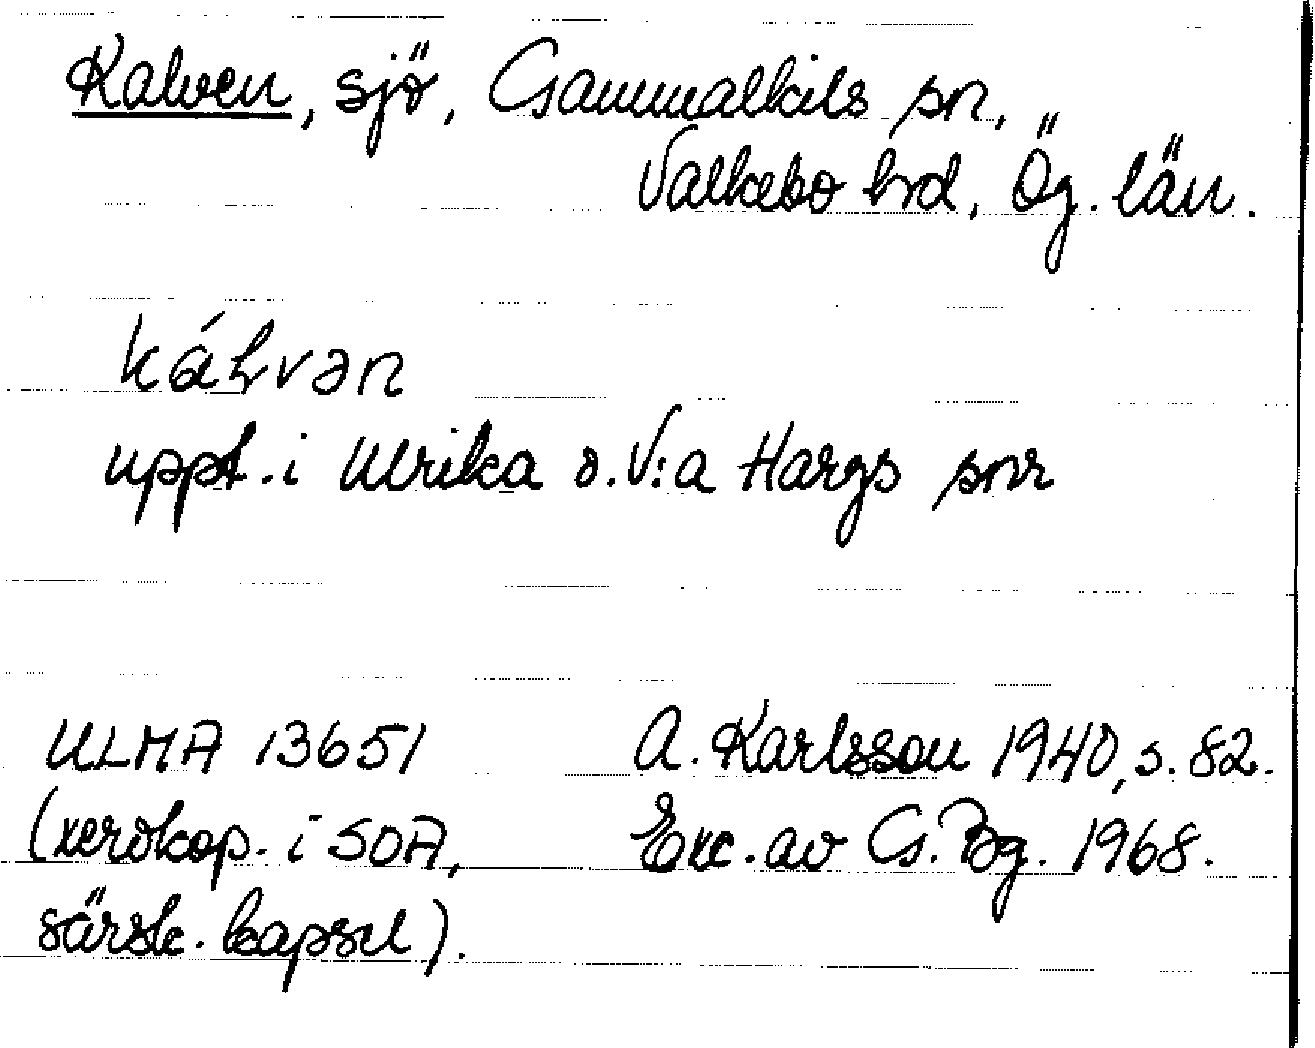 Kalven, sjö, Gammalkils sn,
Valkebo hrd, Ög. län.
kálvən
uppt. i Ulrika o. V:a Hargs snr
ULMA 13651 A. Karlsson 1940, s. 82.
(xerokop. i SOA, Exc. av G. Bg. 1968.
särsk. kapsel).